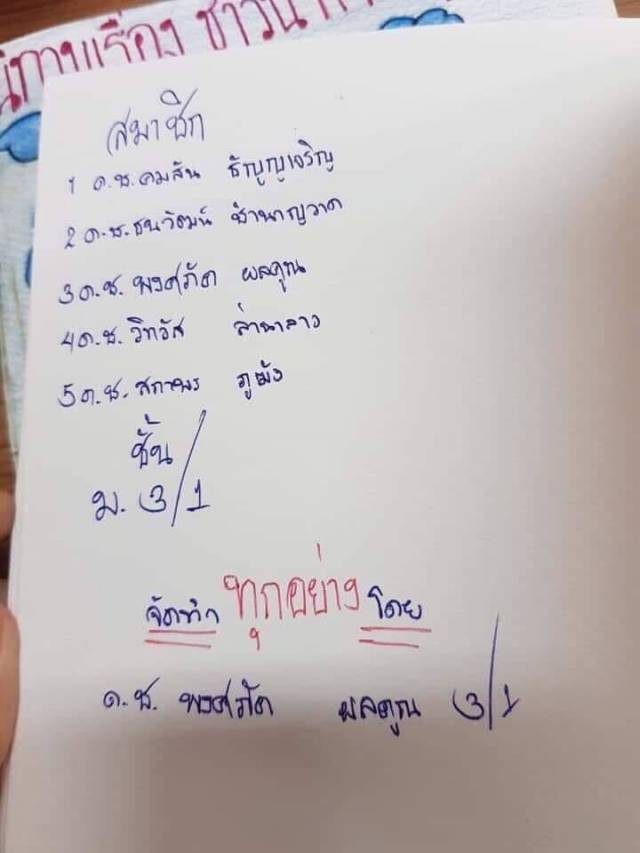 นิทานเรื่อง ชาวนา
สมาชิก
1 ด.ช.คมสัน ธัญญเจริญ
2 ด.ช.ธนวัฒน์ ชำนาญวาด
3 ด.ช. พงศภัค ผลคูณ
4 ด.ช. วิทวัส ล่านาลาว
5 ด.ช. สถาพร ภูผัง
ชั้น
ม. 3/1
จัดทำ ทุกอย่าง โดย
ด.ช. พงศภัค ผลคูณ 3/1